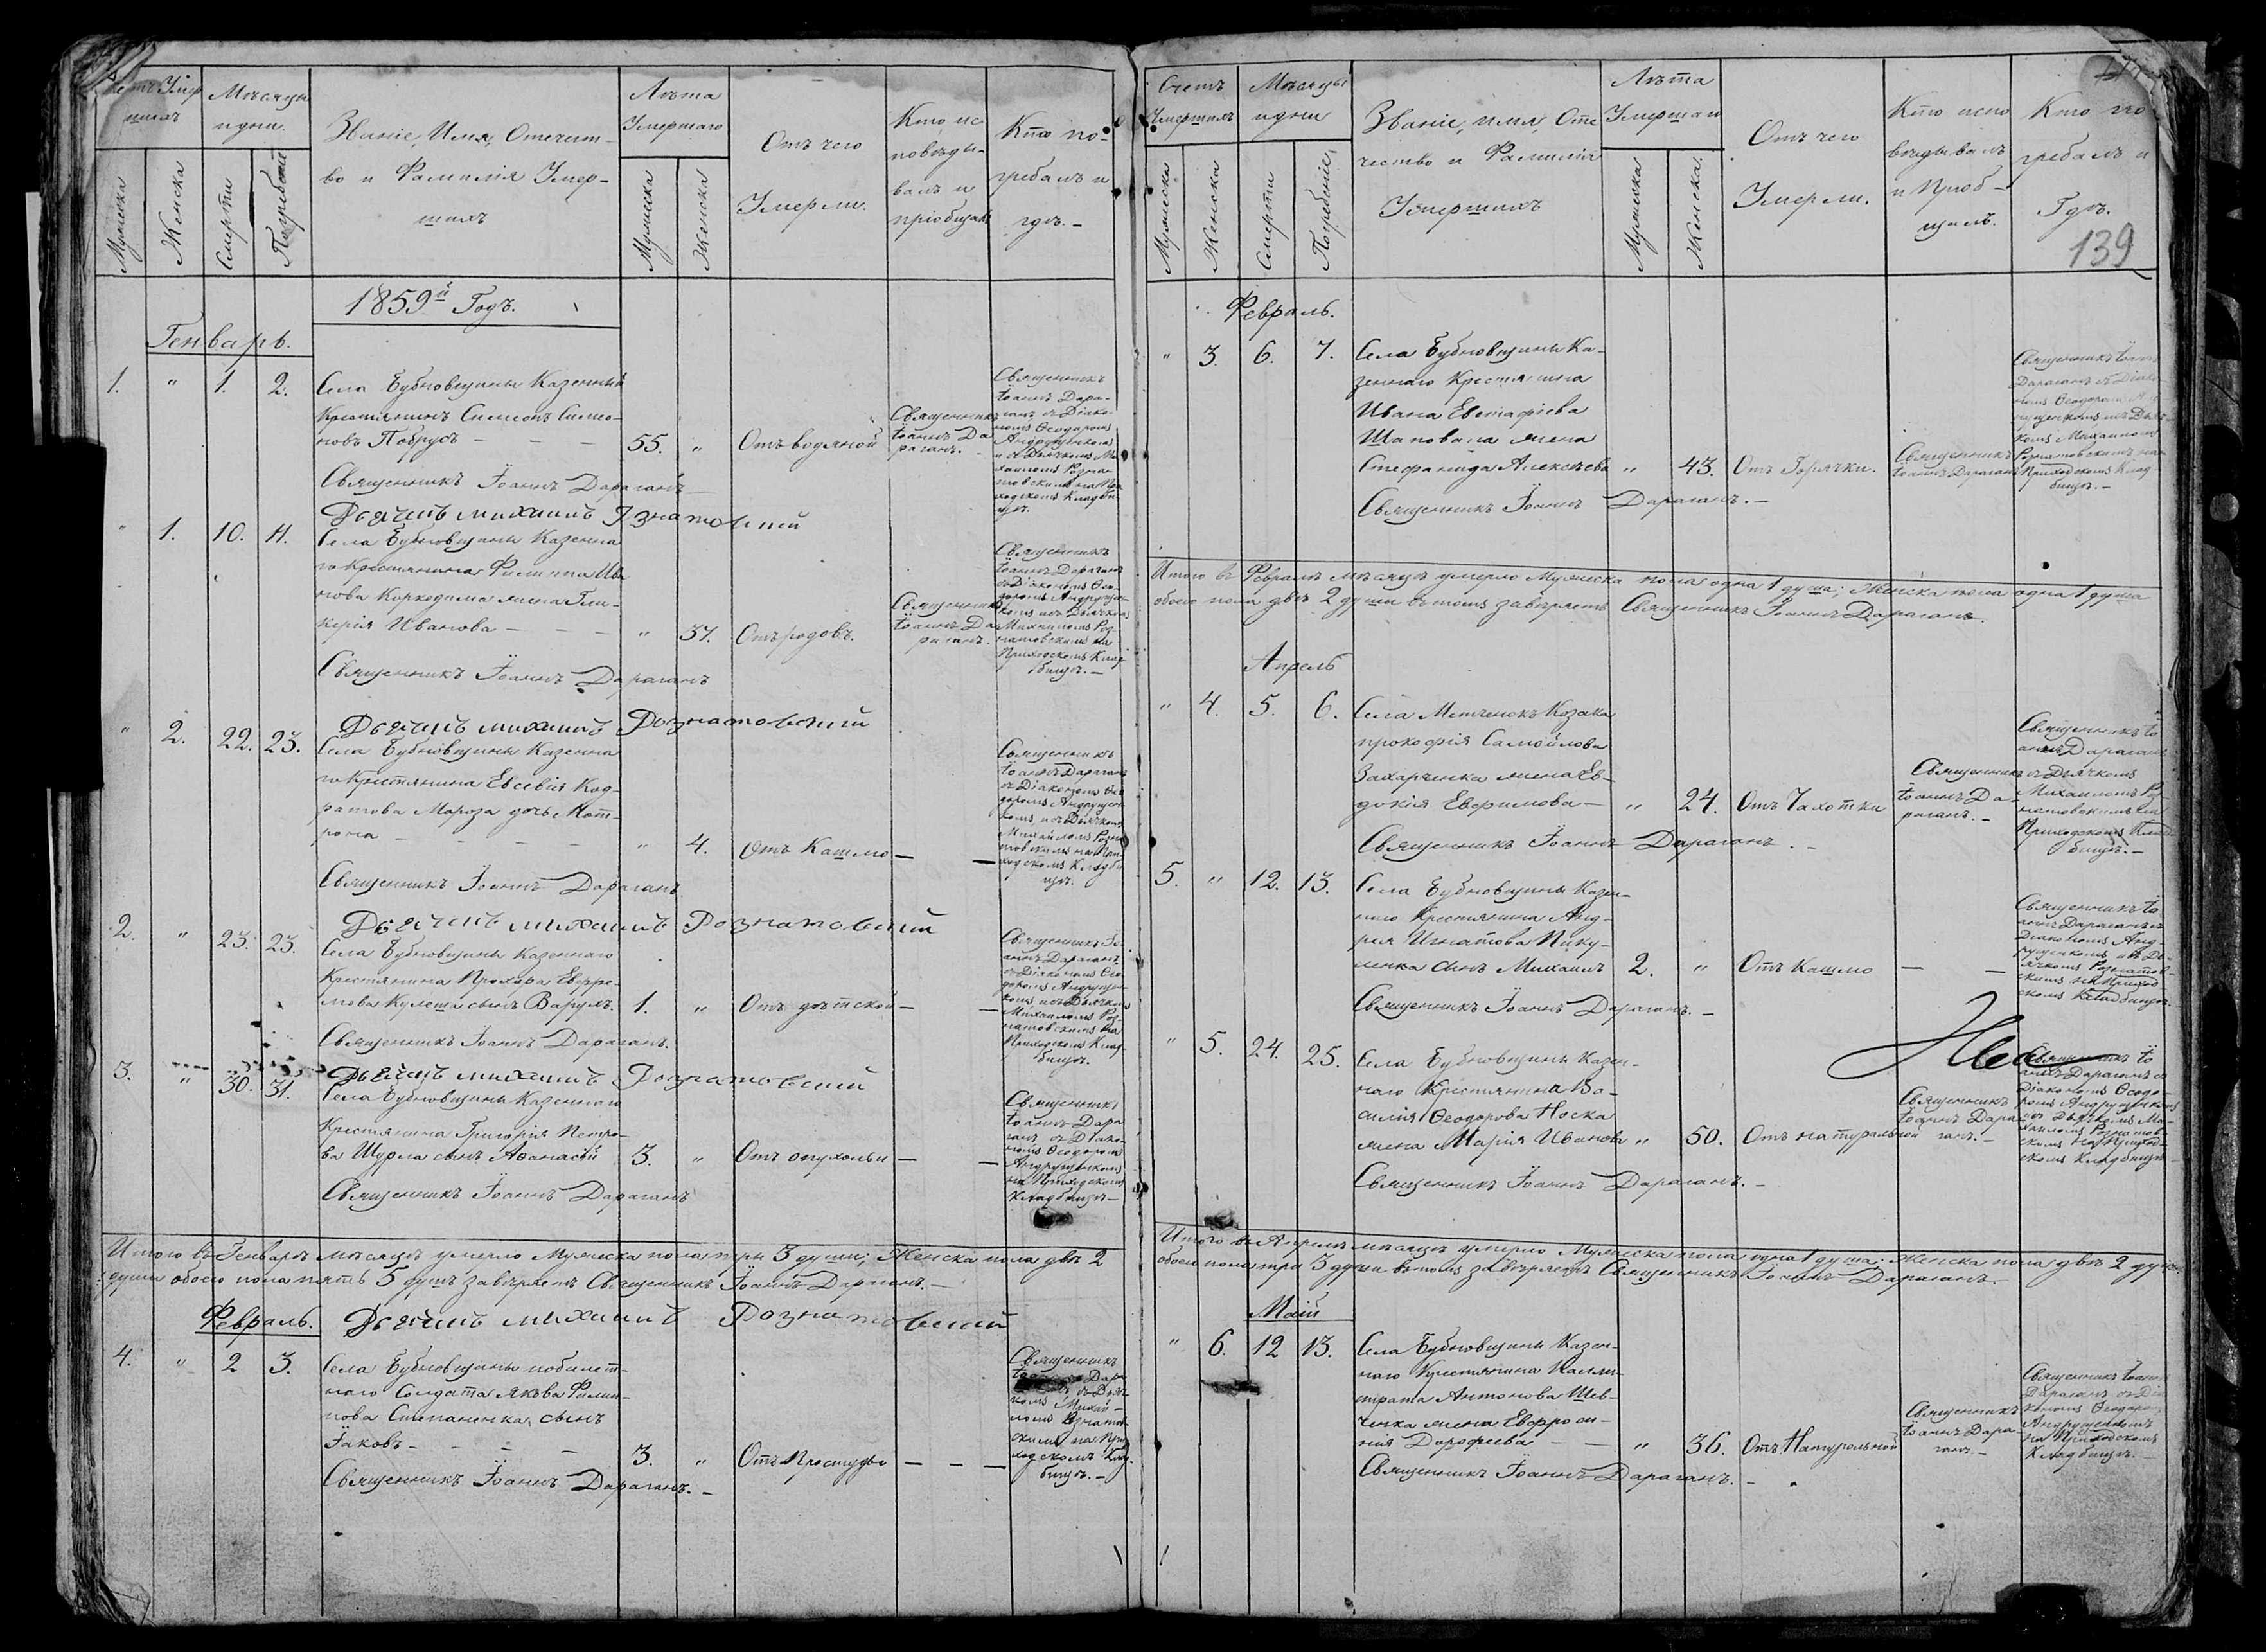 Мѣсяцы
и дни.
Званіе, Имя, Отечест-
во и Фамилія Умер-
шихъ
Лѣта
Умершаго
Отъ чего
Умерли.
Кто ис
повѣды-
валъ и
пріобщалъ
Кто по-
гребалъ и
гдѣ. -
Мужеска
Женска
Смерти
Погребенія
Мужеска
Женска
1859й Годъ.
Генварь.
1. " 1. 2. Села Бубновщины Казенный
Крестьянинъ Симеонъ Симео-
новъ - - - 55. " Отъ водяной
Священникъ
Іоаннъ Да
раганъ. -
Священникъ
Іоаннъ Дара-
ганъ съ Діако-
номъ Ѳеодоромъ
Андрущенкомъ
и съ Дьячкомъ Ми
хаиломъ Розна
товскимъ на При
ходскомъ Кладби-
щѣ.
Священникъ Іоаннъ Дараганъ
Дьячекъ Михаилъ Рознатовский
" 1. 10. 11. Села Бубновщины Казенна
го Крестьянина Филиппа Ива
нова жена Гли-
керія Иванова - - - " 37. Отъ родовъ.
Священникъ
Іоаннъ Да
раганъ.
Священникъ
Іоаннъ Дараганъ
съ Діакономъ Ѳео-
доромъ Андрущен-
комъ и съ Дьячкомъ
Михаиломъ Роз-
натовскимъ на
Приходскомъ Клад-
бищѣ. -
Священникъ Іоаннъ Дараганъ
Дьячекъ Михаилъ Рознатовский
" 2. 22. 23. Села Бубновщины Казенна
го Крестьянина Евсевія Код-
ратова Мороза дочь Мот-
рона - - - " 4. Отъ Кашлю - -
Священникъ
Іоаннъ Дараганъ
съ Діакономъ Ѳео
доромъ Андрущен-
комъ и съ Дьячкомъ
Михаиломъ Розна
товскимъ на При
ходскомъ Кладби
щѣ.
Священникъ Іоаннъ Дараганъ
Дьячекъ Михаилъ Рознатовский
2. " 23. 23. Села Бубновщины Казеннаго
Крестьянина Прохора Евфре-
мова Кулеша сынъ Варулъ. 1. " Отъ дѣтской - -
Священникъ Іо-
аннъ Дараганъ
съ Діакономъ Ѳео
доромъ Андрущен-
комъ и съ Дьячкомъ
Михаиломъ Роз-
натовскимъ на
Приходскомъ Клад-
бищѣ.
Священникъ Іоаннъ Дараганъ.
Дьячекъ Михаилъ Рознатовский
3. " 30. 31. Села Бубновщины Казеннаго
Крестьянина Григорія Петро-
ва сынъ Аѳанасій 3. " Отъ опухольи - -
Священникъ
Іоаннъ Дара-
ганъ съ Діако-
номъ Ѳеодоромъ
Андрущенкомъ
на Приходскомъ
Кладбищѣ -
Священникъ Іоаннъ Дараганъ
Итого въ Генварѣ мѣсяцѣ умерло Мужеска пола три 3 души; Женска пола двѣ 2
души обоего пола пять 5 душъ завѣряетъ Священникъ Іоаннъ Дараганъ. -
Дьячекъ Михаилъ Рознатовский
Февраль.
4. " 2 3. Села Бубновщины побилет-
наго Солдата Якова Филип-
пова Степаненка сынъ
Іаковъ - - - - 3. " Отъ Простуды - - -
Священникъ
Дара-
съ Дьяч-
комъ Михаи-
ломъ Рознатов-
скимъ на При
ходскомъ Клад-
бищѣ. -
Священникъ Іоаннъ Дараганъ. -
Счетъ
Умершихъ
Мѣсяцы
и дни
Званіе, имя, Оте
чество и Фамилія
Умершихъ
Лѣта
Умершаго
Отъ чего
Умерли.
Кто испо
вѣдывалъ
и Приоб-
щалъ.
Кто по
гребалъ и
Гдѣ.
139
Мужеска
Женска
Смерти
Погребенія
Мужеска
Женска.
Февраль.
" 3. 6. 7. Села Бубновщины Ка-
зеннаго Крестьянина
Ивана Евстафіева
Шаповала жена
Стефанида Алексѣева " 43. Отъ Горячки.
Священникъ
Іоаннъ Дараганъ
Священникъ Іоаннъ
Дараганъ съ Діако-
номъ Ѳеодоромъ Анд
рущенкомъ и съ Дьяч-
комъ Михаиломъ
Рознятовскимъ на
Приходскомъ Клад-
бищѣ. -
Священникъ Іоаннъ Дараганъ. -
Итого въ Февралѣ мѣсяцѣ умерло Мужеска пола одна 1 душа; Женска пола одна 1 душа
обоего пола двѣ 2 души въ томъ завѣряетъ Священникъ Іоаннъ Дараганъ.
Апрель
" 4. 5. 6. Села Метченокъ Козака
Прокофія Самойлова
Захарченка жена Ев-
докія Евфимова - " 24. Отъ Чахотки
Священникъ
Іоаннъ Да-
раганъ. -
Священникъ Іо
аннъ Дараганъ
съ Дьячкомъ
Михаиломъ Роз
натовскимъ на
Приходскомъ Клад-
бищѣ. -
Священникъ Іоаннъ Дараганъ. -
5. " 12. 13. Села Бубновщины Казен-
наго Крестьянина Анд-
рея Игнатова Пику-
ленка сынъ Михаилъ 2. " Отъ Кашлю - -
Священникъ Іо
аннъ Дараганъ съ
Діакономъ Анд-
рущенкомъ и съ Дь-
ячкомъ Рознатов-
скимъ на Приход-
скомъ Кладбищѣ.
Священникъ Іоаннъ Дараганъ. -
" 5. 24. 25. Села Бубновщины Казен-
наго Крестьянина Ва-
силія Ѳеодорова Носка
жена Марія Иванова " 50. Отъ натуральной
Священникъ
Іоаннъ Дара-
ганъ. -
Священникъ Іо
аннъ Дараганъ съ
Діакономъ Ѳеодо-
ромъ Андрущенкомъ
и съ Дьячкомъ Ми-
хаиломъ Рознатов-
скимъ на Приход-
скомъ Кладбищѣ -
Священникъ Іоаннъ Дараганъ. -
Итого въ Апрелѣ мѣсяцѣ умерло Мужеска пола одна 1 душа. Женска пола двѣ 2 души
обоего пола три 3 души въ томъ завѣряетъ Священникъ Іоаннъ Дараганъ. -
Май
" 6. 12 13. Села Бубновщины Казен-
наго Крестьянина Калли-
страта Антонова Шев-
ченка жена Евфроси-
нія Дорофеева - - " 36. Отъ Натуральной
Священникъ
Іоаннъ Дара-
ганъ -
Священникъ Іоаннъ
Дараганъ съ Діа
кономъ Ѳеодоромъ
Андрущенкомъ
на Приходскомъ
Кладбищѣ. -
Священникъ Іоаннъ Дараганъ. -